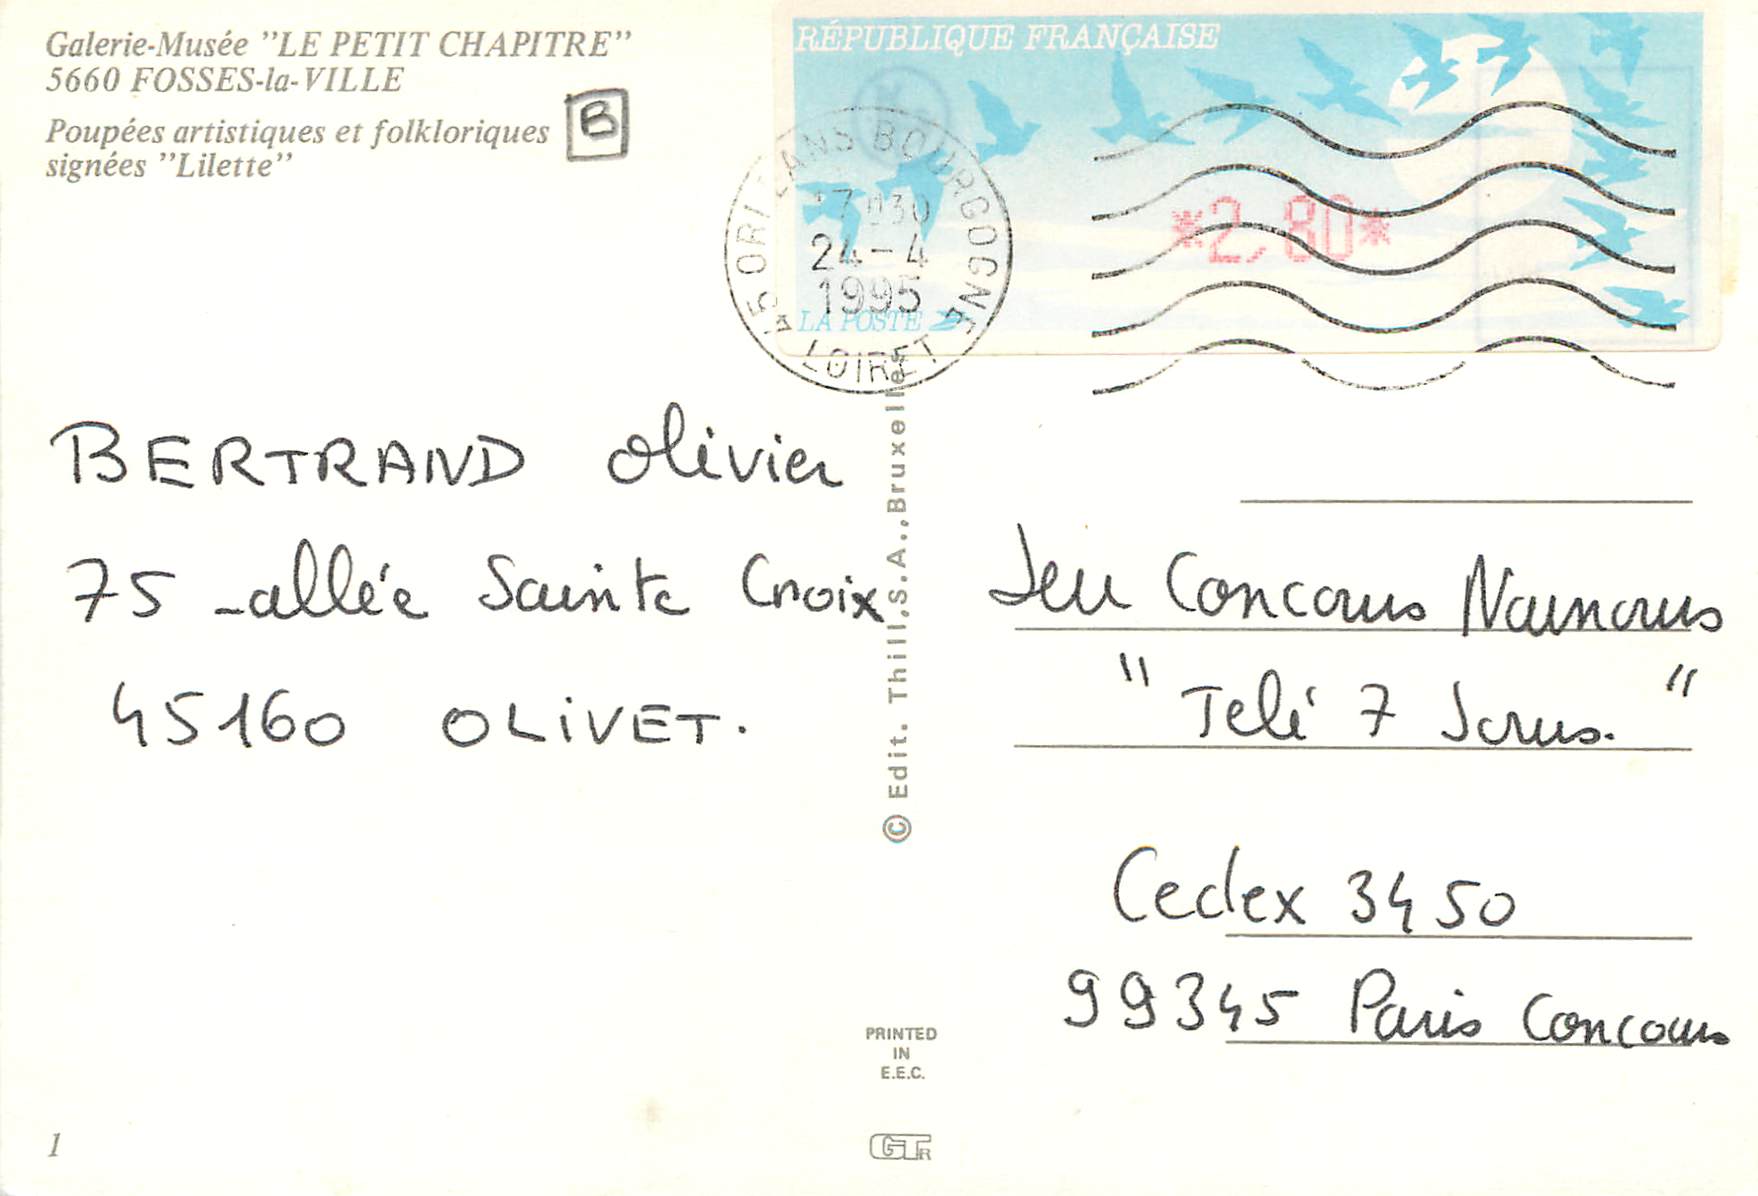 Galerie-Musée "LE PETIT CHAPITRE"
5660 FOSSES-la-VILLE
Poupées artistiques et folkloriques
signées "Lilette"
B
RÉPUBLIQUE FRANÇAISE
*2,80*
LA POSTE
45 ORLEANS BOURGOGNE
17H30
24-4
1995
LOIRET
BERTRAND Olivier
75 - allée Sainte Croix
45160 OLIVET.
© Edit. Thill,S.A.,Bruxelles
Jeu Concours Namours
" Telé 7 Jours. "
Cedex 3450
99345 Paris Concours
PRINTED
IN
E.E.C.
1
GTR